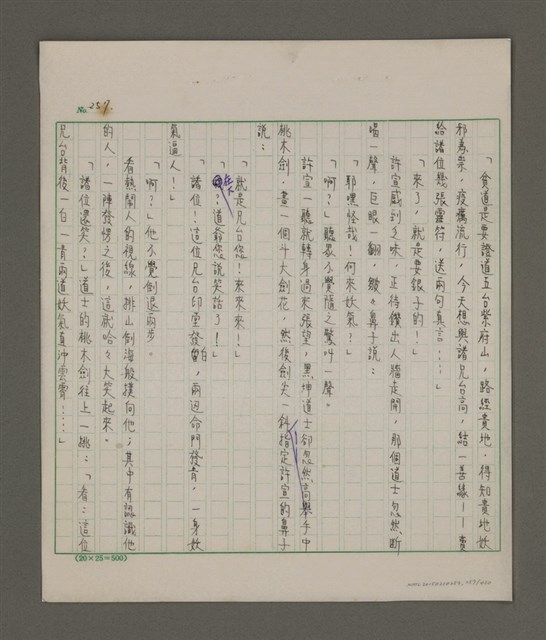 No. 257.
「貧道是要證道五台紫府山,路經貴地,得知貴地妖
邪為祟,疫癘流行,今天想與諸兄台高,結一善緣——賣
給諸位幾張靈符,送兩句真言……」
「來了,就是要銀子的!」
許宣感到乏味,正待鑽出人牆走開,那個道士忽然斷
喝一聲,巨眼一翻,皺々鼻子說:
「耶嘿怪哉!何來妖氣?」
「啊?」聽眾不覺隨之驚叫一聲。
許宣一聽就轉身過來張望,黑坤道士卻忽然高舉手中
桃木劍,畫一個斗大劍花,然後劍尖一斜指定許宣的鼻子
說:
「就是兄台您!來來來!」
「我?道爺您說笑話了!」
「諸位!這位兄台印堂發白,兩迎命門發青,一身妖
氣逼人!」
「啊?」他不覺倒退兩步。
看熱鬧人的視線,排山倒海般撲向他;其中有認識他
的人,一陣發愣之後,這就哈々大笑起來。
「諸位還笑?」道士的桃木劍往上一挑:「看:這位
兄台背後一白一青兩道妖氣直沖雲霄……」
(20×25=500)